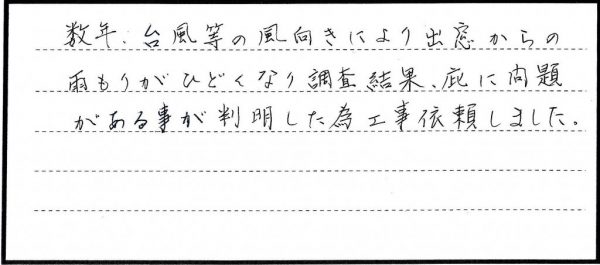 数年、台風等の風向きにより出窓からの
雨もりがひどくなり調査結果、庇に問題
がある事が判明した為工事依頼しました。